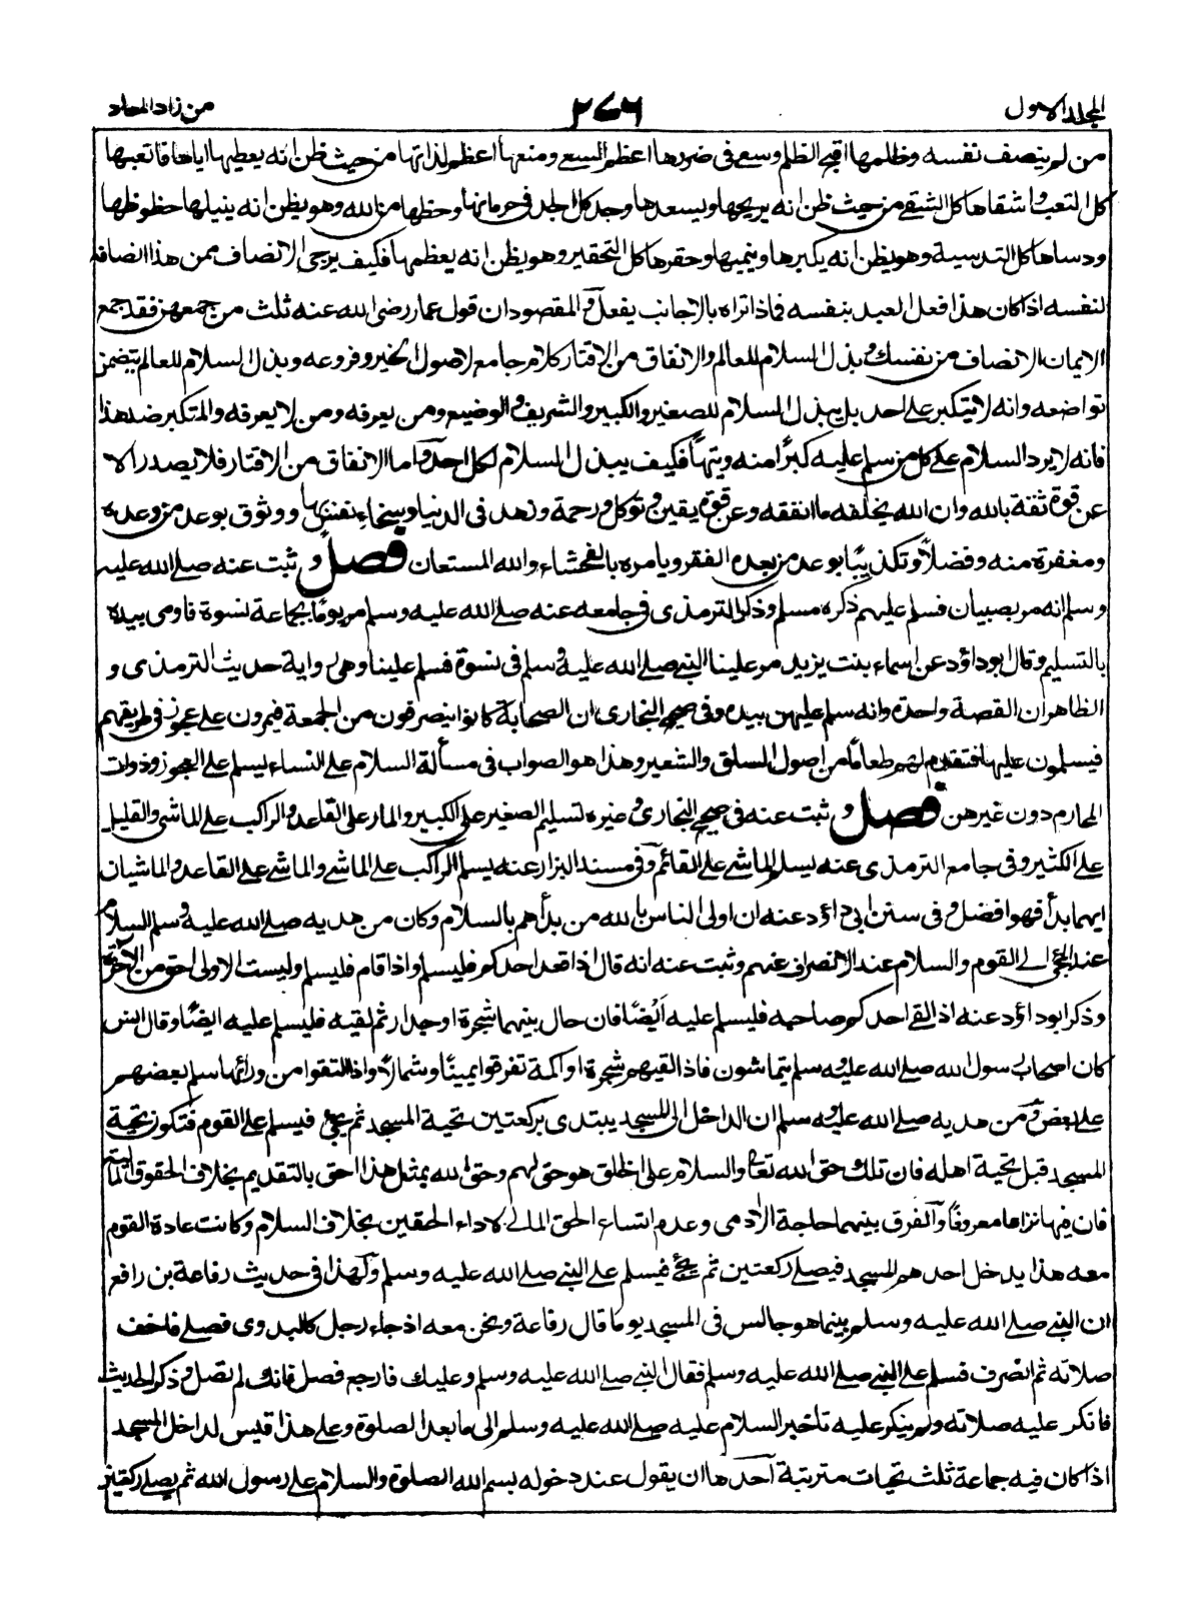 المجلد الاول
٢٧٦
من زاد المعاد
من لم ينصف نفسه وظلمها اقبح الظلم وسعى فى ضررها اعظم السعى ومنعها اعظم لذاتها من حيث ظن انه يعطيها اياها فاتعبها
كل التعب واشقاها كل الشقى من حيث ظن انه يريحها ويسعدها وجد كل الجد فى حرمانها وحظها من الله وهو يظن انه ينيلها حظوظها
ودساها كل التدسية وهو يظن انه يكبرها وينميها وحقرها كل التحقير وهو يظن انه يعظمها فكيف يرجى الانصاف ممن هذا انصافه
لنفسه اذا كان هذا فعل العبد بنفسه فماذا تراه بالاجانب يفعل والمقصود ان قول عمار رضى الله عنه ثلث من جمعهن فقد جمع
الايمان الانصاف من نفسك وبذل السلام للعالم والانفاق من الاقتار كلام جامع لاصول الخير وفروعه وبذل السلام للعالم يتضمن
تواضعه وانه لا يتكبر على احد بل يبذل السلام للصغير والكبير والشريف والوضيع ومن يعرفه ومن لا يعرفه والمتكبر ضد هذا
فانه لا يرد السلام على كل من سلم عليه كبرًا منه وتيهًا فكيف يبذل السلام لكل احد واما الانفاق من الاقتار فلا يصدر الا
عن قوة ثقة بالله وان الله يخلفه ما انفقه وعن قوة يقين وتوكل ورحمة وزهد فى الدنيا وسخاء نفس بها ووثوق بوعد من وعده
ومغفرة منه وفضلًا وتكذيبًا بوعد من يعده الفقر ويامره بالفحشاء والله المستعان فصل وثبت عنه صلى الله عليه
وسلم انه مر بصبيان فسلم عليهم ذكره مسلم وذكر الترمذى فى جامعه عنه صلى الله عليه وسلم مر يومًا بجماعة نسوة فاومى بيده
بالتسليم وقال ابو داؤد عن اسماء بنت يزيد مر علينا النبى صلى الله عليه وسلم فى نسوة فسلم علينا وهى رواية حديث الترمذى و
الظاهر ان القصة واحدة وانه سلم عليهن بيده وفى صحيح البخارى ان الصحابة كانوا ينصرفون من الجمعة فيمرون على عجوز فى طريقهم
فيسلمون عليها فتقدم لهم طعامًا من اصول السلق والشعير وهذا هو الصواب فى مسألة السلام على النساء يسلم على العجوز وذوات
المحارم دون غيرهن فصل وثبت عنه فى صحيح البخارى وغيره تسليم الصغير على الكبير والمار على القاعد والراكب على الماشى والقليل
على الكثير وفى جامع الترمذى عنه يسلم الماشى على القائم وفى مسند البزار عنه يسلم الراكب على الماشى والماشى على القاعد والماشيان
ايهما بدأ فهو افضل وفى سنن ابى داؤد عنه ان اولى الناس بالله من بدأهم بالسلام وكان من هديه صلى الله عليه وسلم السلام
عند المجئ الى القوم والسلام عند الانصراف عنهم وثبت عنه انه قال اذا قعد احدكم فليسلم واذا قام فليسلم وليست الاولى احق من الآخرة
وذكر ابو داؤد عنه اذا لقى احدكم صاحبه فليسلم عليه اَيْضًا فان حال بينهما شجرة او جدار ثم لقيه فليسلم عليه ايضًا وقال انس
كان اصحاب رسول الله صلى الله عليه وسلم يتماشون فاذا لقيهم شجرة او اكمة تفرقوا يمينًا وشمالًا واذا التقوا من ورائها سلم بعضهم
على بعض ومن هديه صلى الله عليه وسلم ان الداخل الى المسجد يبتدى بركعتين تحية المسجد ثم يجئ فيسلم على القوم فتكون تحية
المسجد قبل تحية اهله فان تلك حق الله تعالى والسلام على الخلق هو حق لهم وحق الله بمثل هذا احق بالتقديم بخلاف الحقوق المالية
فان فيها نزاعا معروفًا والفرق بينهما حاجة الآدمى وعدم اتساع الحق المالى لاداء الحقين بخلاف السلام وكانت عادة القوم
معه هذا يدخل احدهم المسجد فيصلى ركعتين ثم يجئ فيسلم على النبى صلى الله عليه وسلم ولهذا فى حديث رفاعة بن رافع
ان النبى صلى الله عليه وسلم بينما هو جالس فى المسجد يوما قال رفاعة ونحن معه اذ جاء رجل كالبدوى فصلى فاخف
صلاته ثم انصرف فسلم على النبى صلى الله عليه وسلم فقال النبى صلى الله عليه وسلم وعليك فارجع فصل فانك لم تصل وذكر الحديث
فانكر عليه صلاته ولم ينكر عليه تاخير السلام عليه صلى الله عليه وسلم الى ما بعد الصلوة وعلى هذا قيس لداخل المسجد
اذا كان فيه جماعة ثلث تحيات مترتبة آحدها ان يقول عند دخوله بسم الله الصلوة والسلام على رسول الله ثم يصلى ركعتين